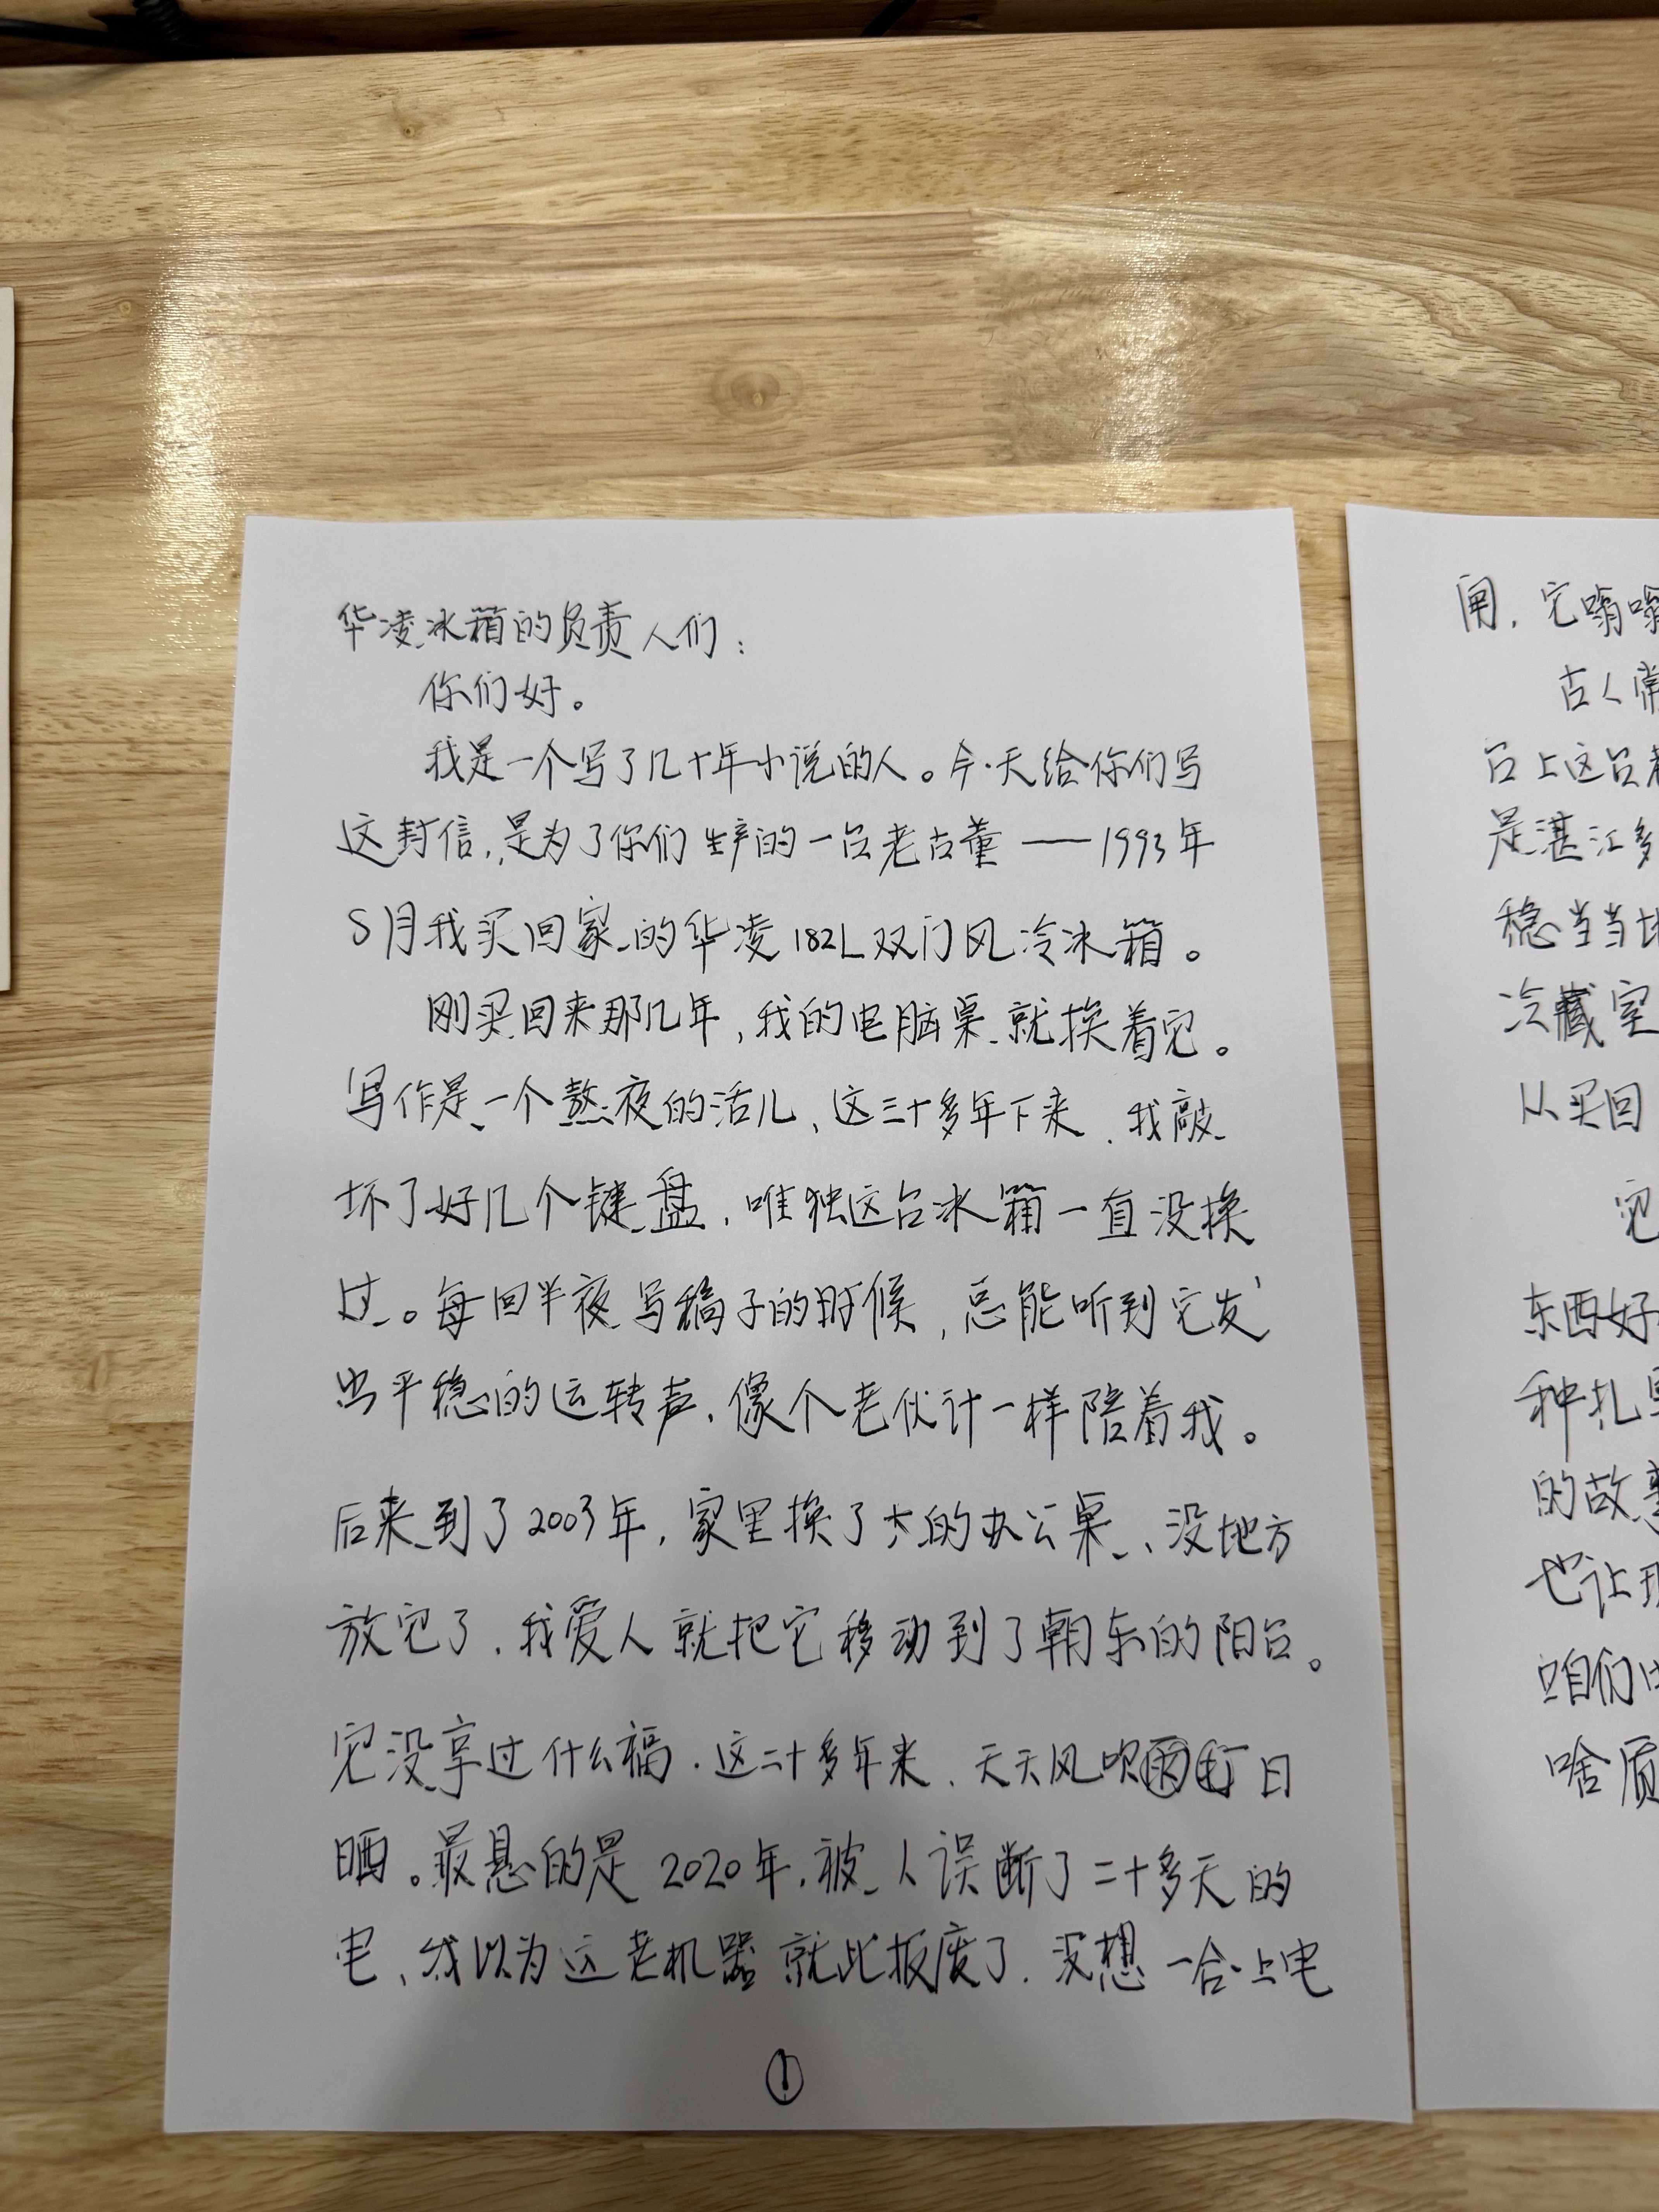 华凌冰箱的负责人们：
你们好。
我是一个写了几十年小说的人。今天给你们写
这封信，是为了你们生产的一台老古董——1993年
5月我买回家的华凌182L双门风冷冰箱。
刚买回来那几年，我的电脑桌就挨着它。
写作是一个熬夜的活儿、这三十多年下来，我敲
坏了好几个键盘，唯独这台冰箱一直没换
过。每回半夜写稿子的时候，总能听到它发
出平稳的运转声，像个老伙计一样陪着我。
后来到了2003年，家里换了大的办公桌、没地方
放它了，我爱人就把它移动到了朝东的阳台。
它没享过什么福．这二十多年来、天天风吹雨打日
晒。最悬的是2020年，被人误断了二十多天的
电、我以为这老机器就此报废了．没想一合上电
①
闸，它嗡嗡
古人常
台上这台老
是湛江多
稳当当地
冷藏室
从买回
它
东西好
种扎
的故事
也让我
咱们
啥质